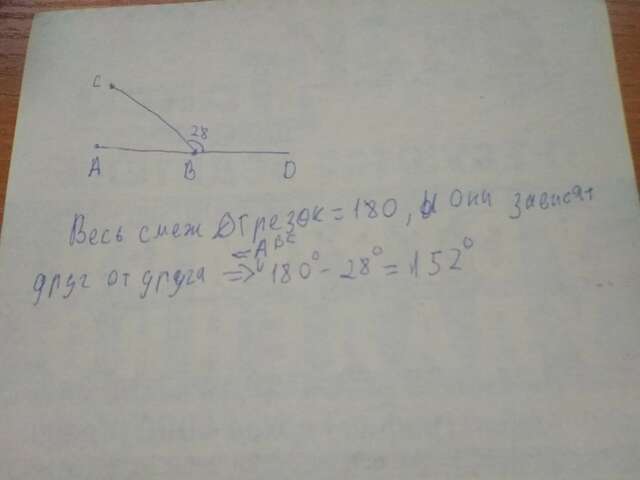 C
28
A B D
Весь смеж Отрезок = 180, и они зависят
∠ABC
друг от друга => 180° - 28° = 152°